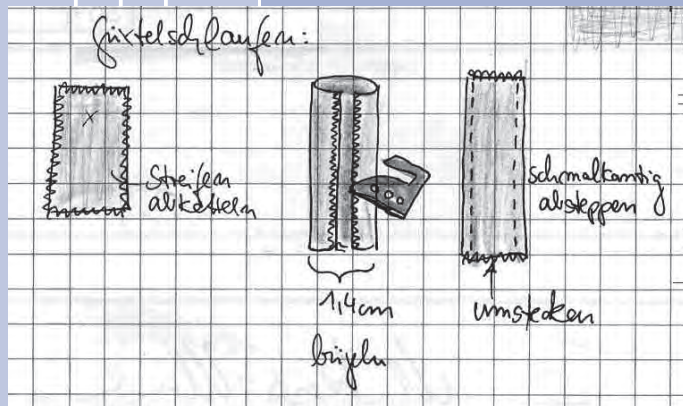 Gürtelschlaufen:
x
Streifen
abketteln
1,4cm
bügeln
schmalkantig
absteppen
umstecken